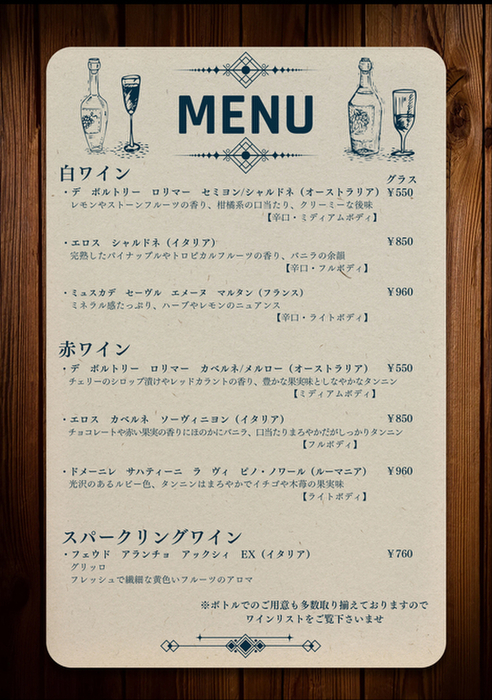 MENU
白ワイン
グラス
・デ ボルトリー ロリマー セミヨン/シャルドネ（オーストラリア） ¥550
レモンやストーンフルーツの香り、柑橘系の口当たり、クリーミーな後味
【辛口・ミディアムボディ】
・エロス シャルドネ（イタリア） ¥850
完熟したパイナップルやトロピカルフルーツの香り、バニラの余韻
【辛口・フルボディ】
・ミュスカデ セーヴル エメーヌ マルタン（フランス） ¥960
ミネラル感たっぷり、ハーブやレモンのニュアンス
【辛口・ライトボディ】
赤ワイン
・デ ボルトリー ロリマー カベルネ/メルロー（オーストラリア） ¥550
チェリーのシロップ漬けやレッドカラントの香り、豊かな果実味としなやかなタンニン
【ミディアムボディ】
・エロス カベルネ ソーヴィニヨン（イタリア） ¥850
チョコレートや赤い果実の香りにほのかにバニラ、口当たりまろやかだがしっかりタンニン
【フルボディ】
・ドメーニレ サハティーニ ラ ヴィ ピノ・ノワール（ルーマニア） ¥960
光沢のあるルビー色、タンニンはまろやかでイチゴや木苺の果実味
【ライトボディ】
スパークリングワイン
・フェウド アランチョ アックシィ EX（イタリア） ¥760
グリッロ
フレッシュで繊細な黄色いフルーツのアロマ
※ボトルでのご用意も多数取り揃えておりますので
ワインリストをご覧下さいませ